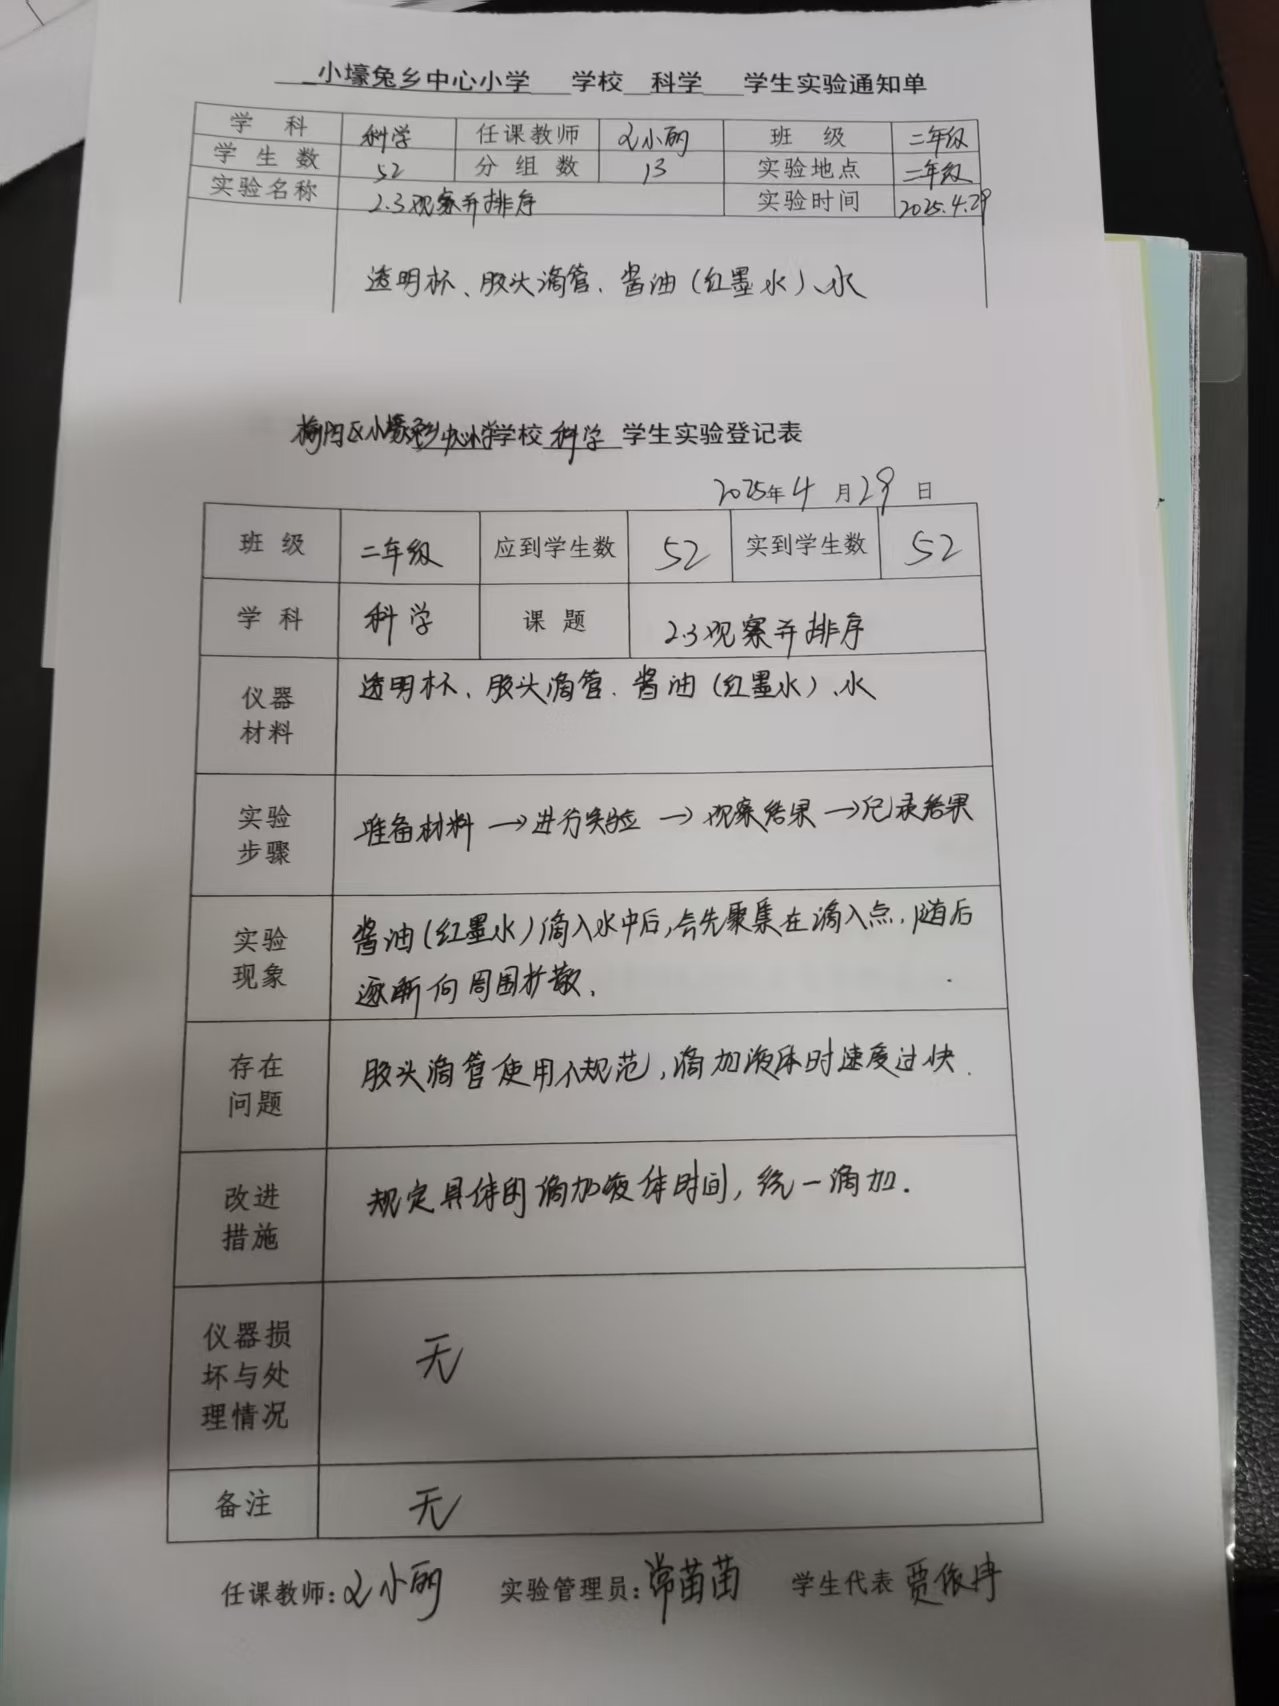 小壕兔乡中心小学 学校 科学 学生实验通知单
学 科 科学 任课教师 小丽 班 级 二年级
学 生 数 52 分 组 数 13 实验地点 二年级
实验名称 2.3观察并排序 实验时间 2025.4.29
透明杯、胶头滴管、酱油(红墨水)、水
榆阳区小壕兔乡中心小学学校 科学 学生实验登记表
2025年 4 月 29 日
班 级 二年级 应到学生数 52 实到学生数 52
学 科 科学 课 题 2.3观察并排序
仪器 透明杯、胶头滴管、酱油(红墨水)、水
材料
实验 准备材料→进行实验→观察结果→记录结果
步骤
实验 酱油(红墨水)滴入水中后,会先聚集在滴入点,随后
现象 逐渐向周围扩散.
存在 胶头滴管使用不规范,滴加液体时速度过快.
问题
改进 规定具体的滴加液体时间,统一滴加.
措施
仪器损
坏与处 无
理情况
备注 无
任课教师: 小丽 实验管理员:常苗苗 学生代表 贾依冉